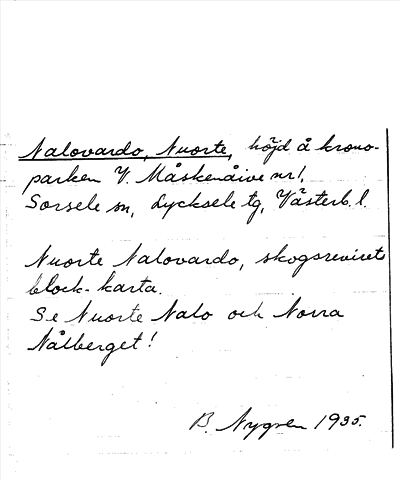 Nalovardo, Nuorte, höjd å krono-
parken V. Måskenåive nr 1,
Sorsele sn, Lycksele tg, Västerb. l.
Nuorte Nalovardo, skogsrevirets
block-karta.
Se Nuorte Nalo och Norra
Nålberget!
B. Nygren 1935.